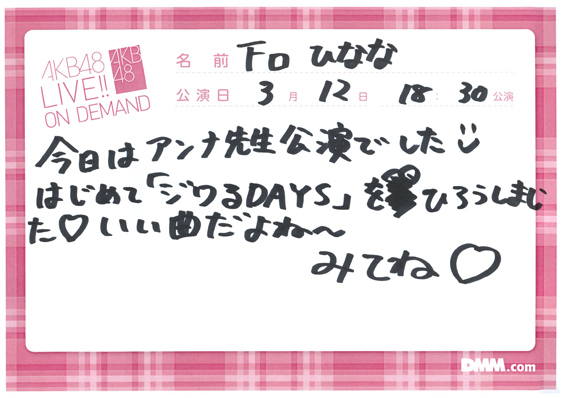 AKB48
LIVE!!
ON DEMAND
AKB
48
名前 下口 ひなな
公演日 3月 12日 18:30公演
今日はアンナ先生公演でした
はじめて「ジワるDAYS」をひろうしまし
た♡いい曲だよね〜
みてね♡
DMM.com